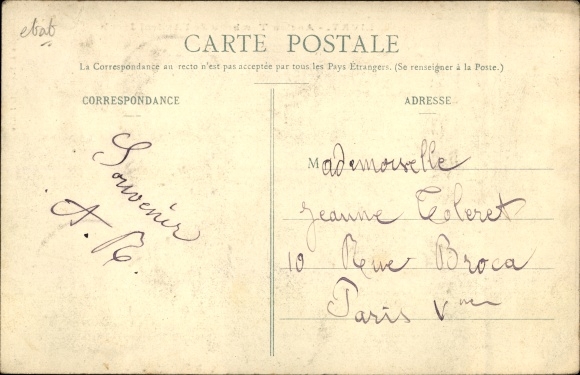 etab
CARTE POSTALE
La Correspondance au recto n'est pas acceptée par tous les Pays Étrangers. (Se renseigner à la Poste.)
CORRESPONDANCE
Souvenir
A. R.
ADRESSE
Mademoiselle
Jeanne Toleret
10 Rue Broca
Paris Vme